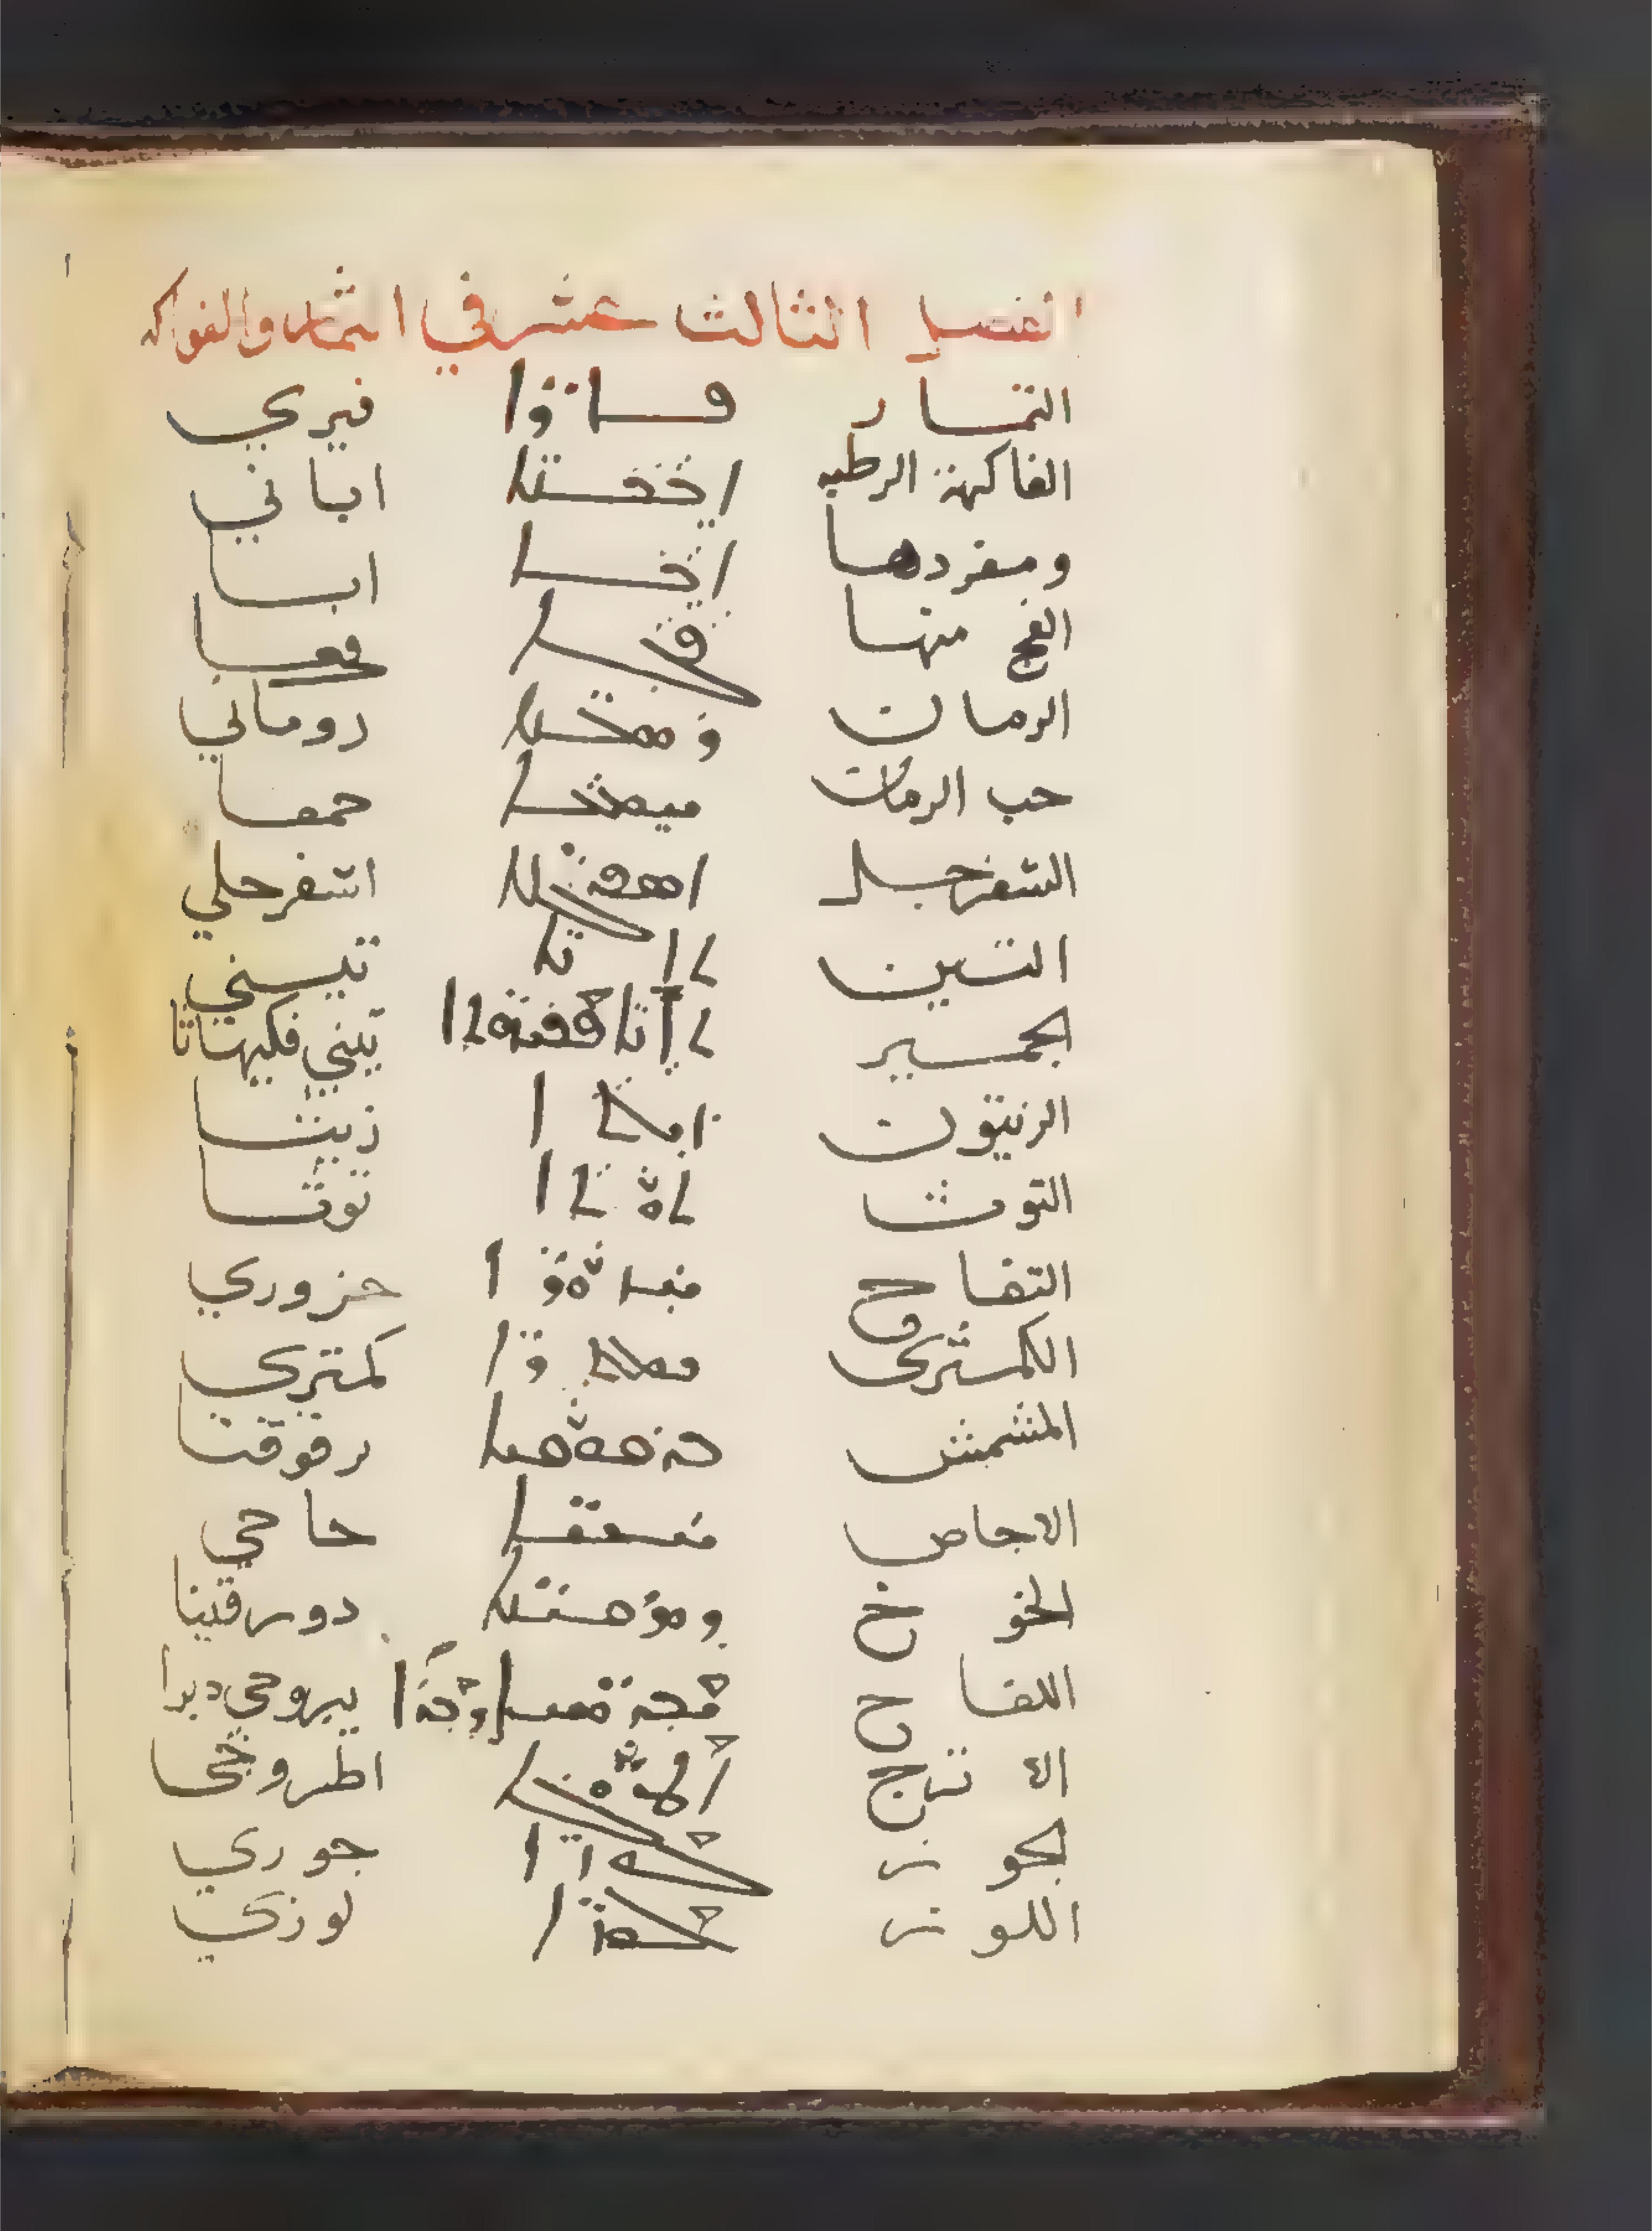 الفصل الثالث عشر في اثمار والفواكه
الثمار ܦܐܪ̈ܐ فيري
الفاكهة الرطبه اباني
ومفردها ܐܒܐ ابا
الفج منها ܦܓܐ فعا
الرمان ܪ̈ܘܡܢܐ روماني
حب الرمان حمعا
السفرجل ܐܣܦܪ̈ܓܠܐ اسفرحلي
التين ܬܐܢ̈ܐ تيني
الجمير ܬܐܢܐ ܦܟܝܗܬܐ تيني فكيهاثا
الزيتون ܙܝܬܐ زيتا
التوث ܬܘܬܐ توثا
التفاح ܚܙܘܪ̈ܐ حزوري
الكمثرى ܟܡܬܪ̈ܐ كمتري
المشمش رقوقتا
الاجاص حاحي
الخوخ ܕܘܪܩܝܢܐ دورقينا
اللفاح يبروحي ديرا
الاترج ܐܛܪܘܓܐ اطروجا
الجوز ܓܘܙ̈ܐ جوزي
اللوز ܠܘܙ̈ܐ لوزي